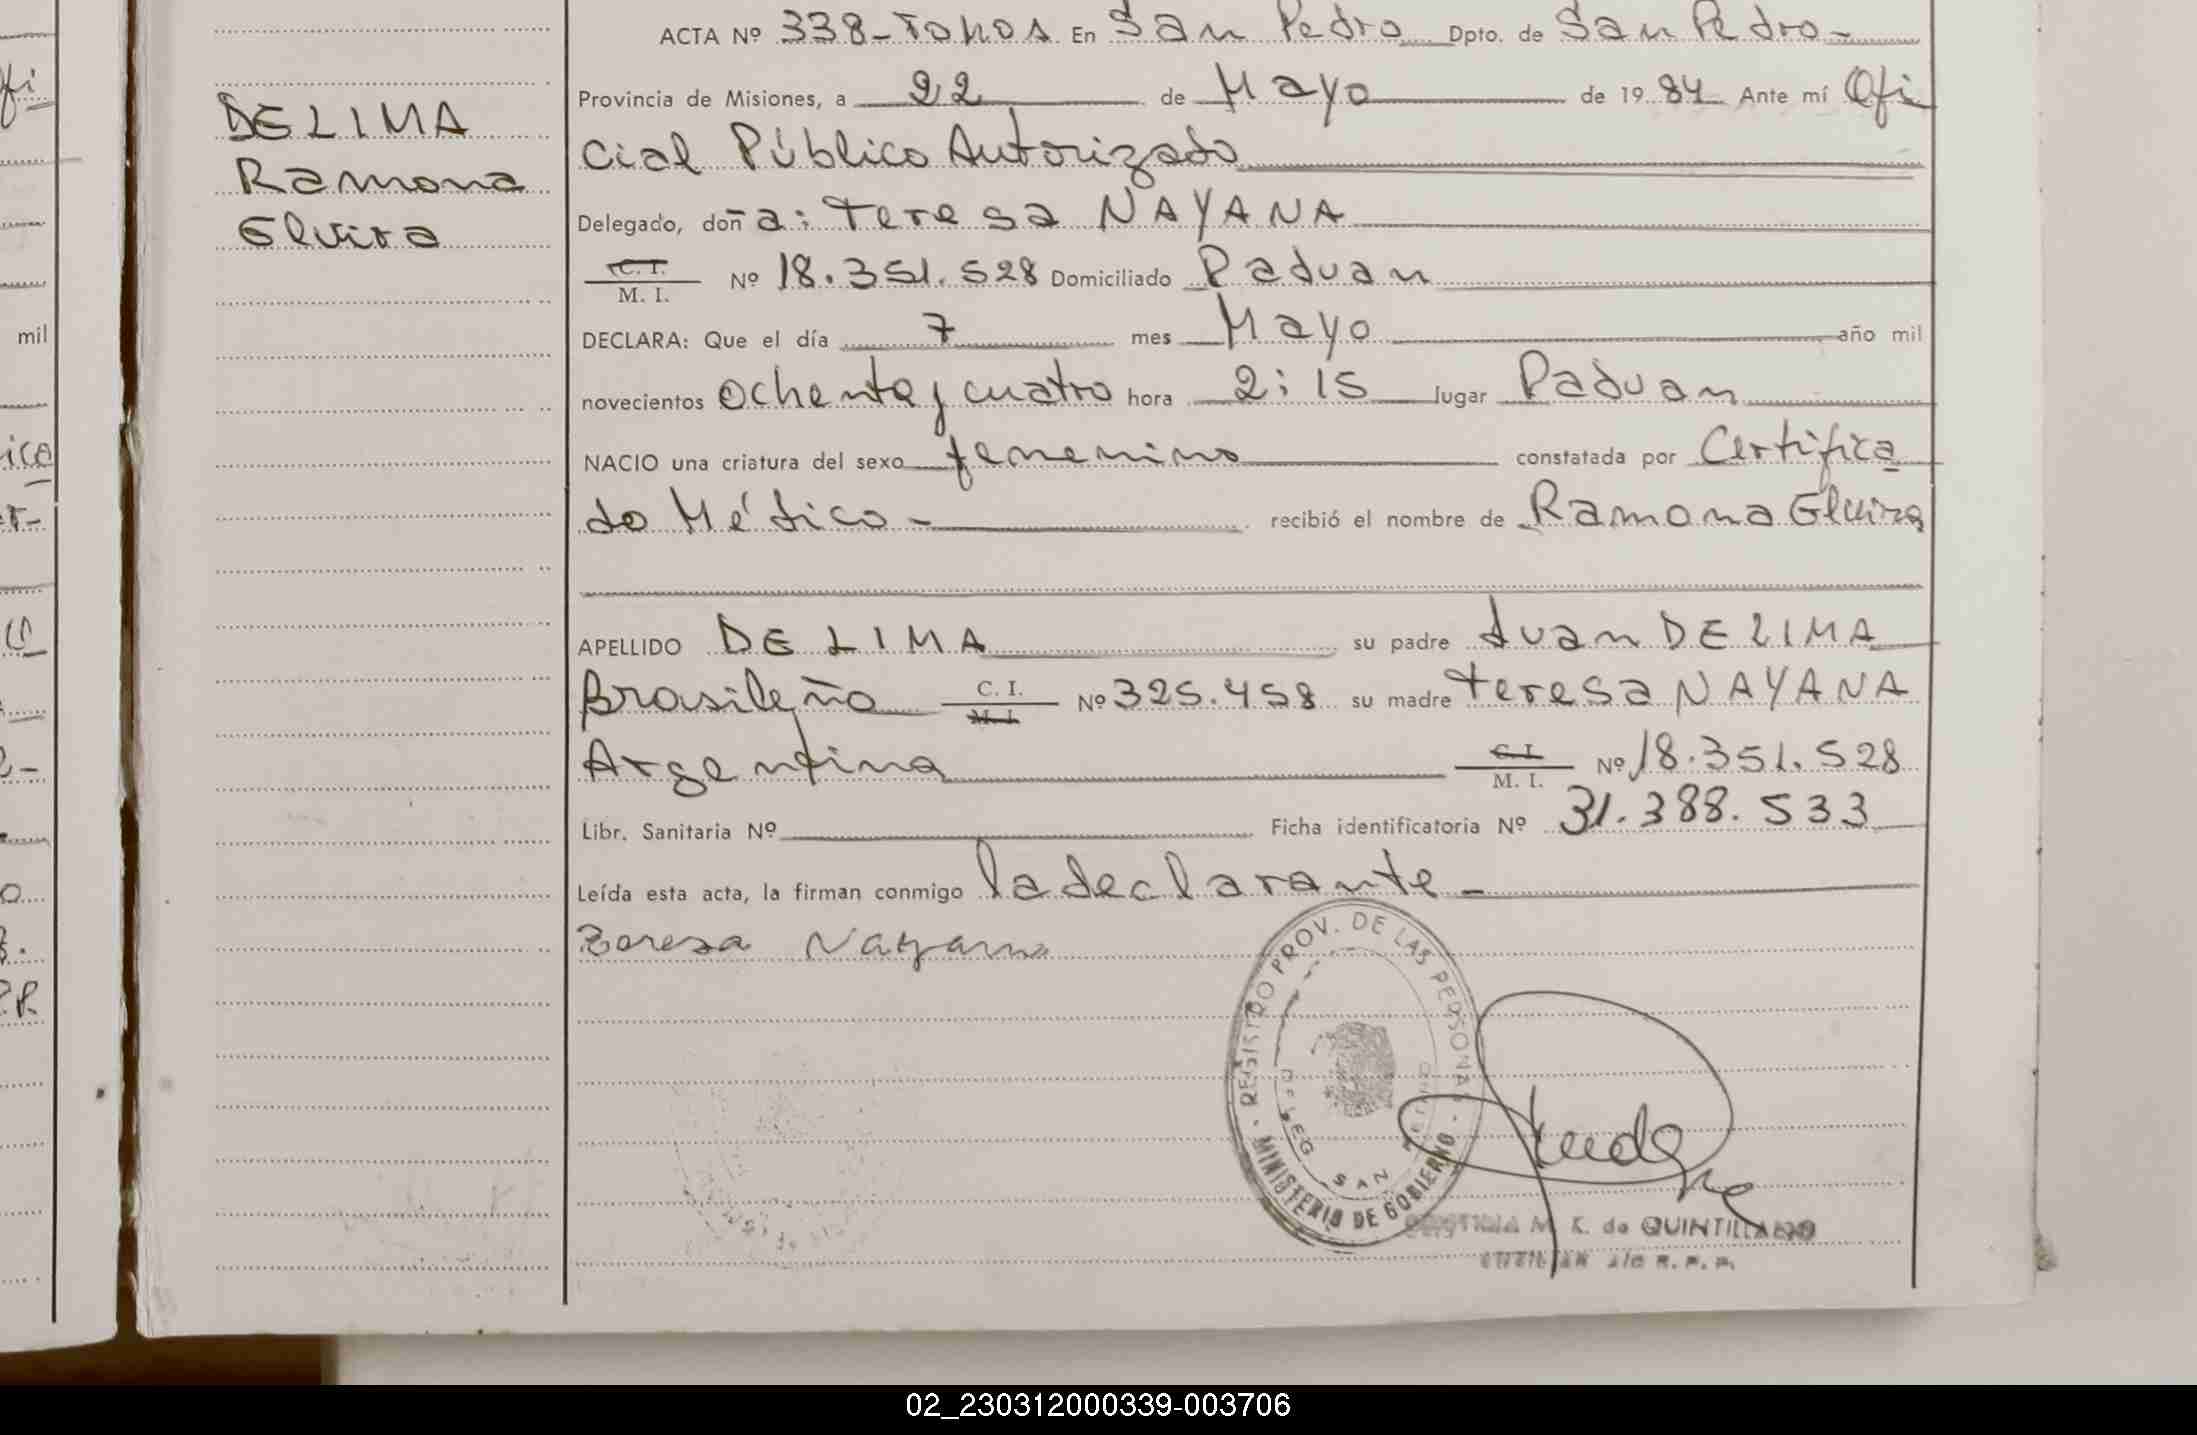 DE LIMA
Ramona
Elvira
ACTA Nº 338-Tomos En San Pedro Dpto. de San Pedro-
Provincia de Misiones, a 22 de Mayo de 1984 Ante mí Ofi
cial Público Autorizado
Delegado, doña: Teresa NAYANA
C. I.
M. I. Nº 18.351.528 Domiciliado Paduan
DECLARA: Que el día 7 mes Mayo año mil
novecientos ochenta y cuatro hora 2:15 lugar Paduan
NACIO una criatura del sexo femenino constatada por Certifica
do Médico- recibió el nombre de Ramona Elvira
APELLIDO DE LIMA su padre Juan DE LIMA
Brasileño C. I. M. I. Nº 325.458 su madre Teresa NAYANA
Argentina C. I. M. I. Nº 18.351.528
Libr. Sanitaria Nº Ficha identificatoria Nº 31.388.533
Leída esta acta, la firman conmigo la declarante-
Teresa Nayana
REGISTRO PROV. DE LAS PERSONAS
DELEG SAN
MINISTERIO DE GOBIERNO
M. K. de QUINTILLANO
mil
02_230312000339-003706